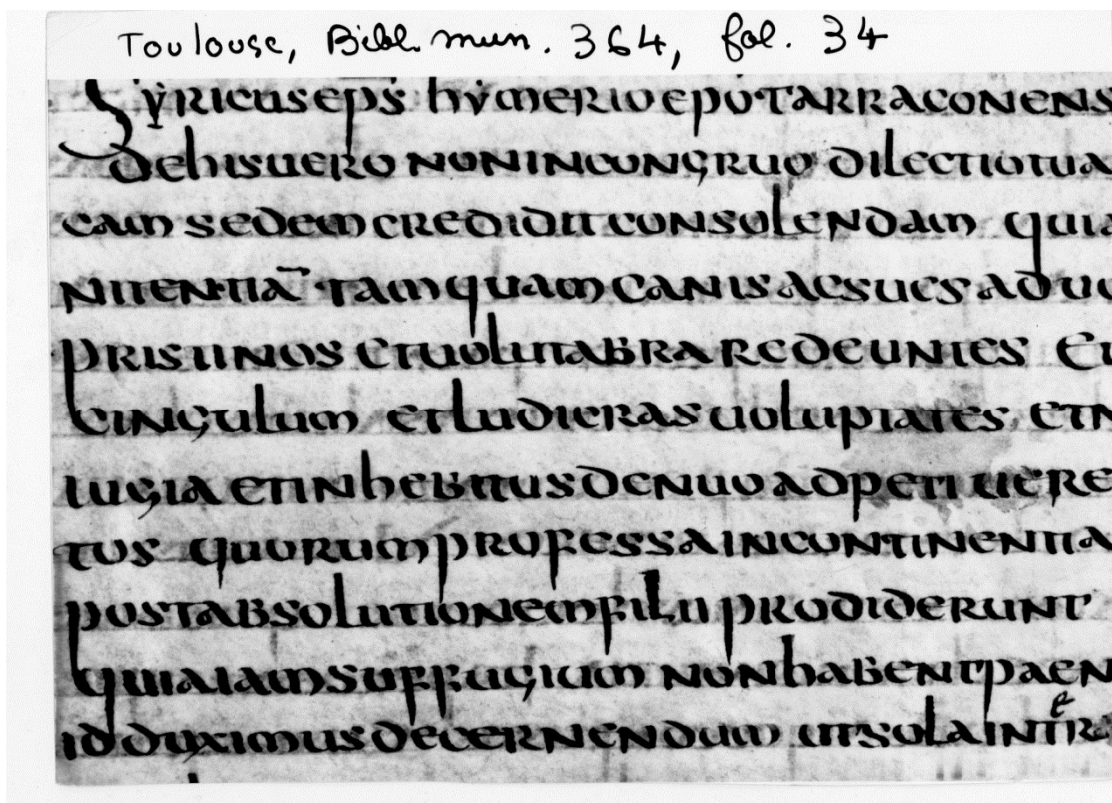 Toulouse, Bibl. mun. 364, fol. 34
Syricus eps hymerio epo tarraconens
de his uero non incongruo dilectio tua
cam sedem credidit consolendam quia
nitentiā tamquam canis ac sues ad uo
pristinos et uolutabra redeuntes et
cingulum et ludicras uoluptates et n
iugia et inhebitus denuo adpetiuere
tus quorum professa incontinentia
post absolutionem filii prodiderunt
quia iam suffugium non habent paen
id duximus decernendum ut sola intre